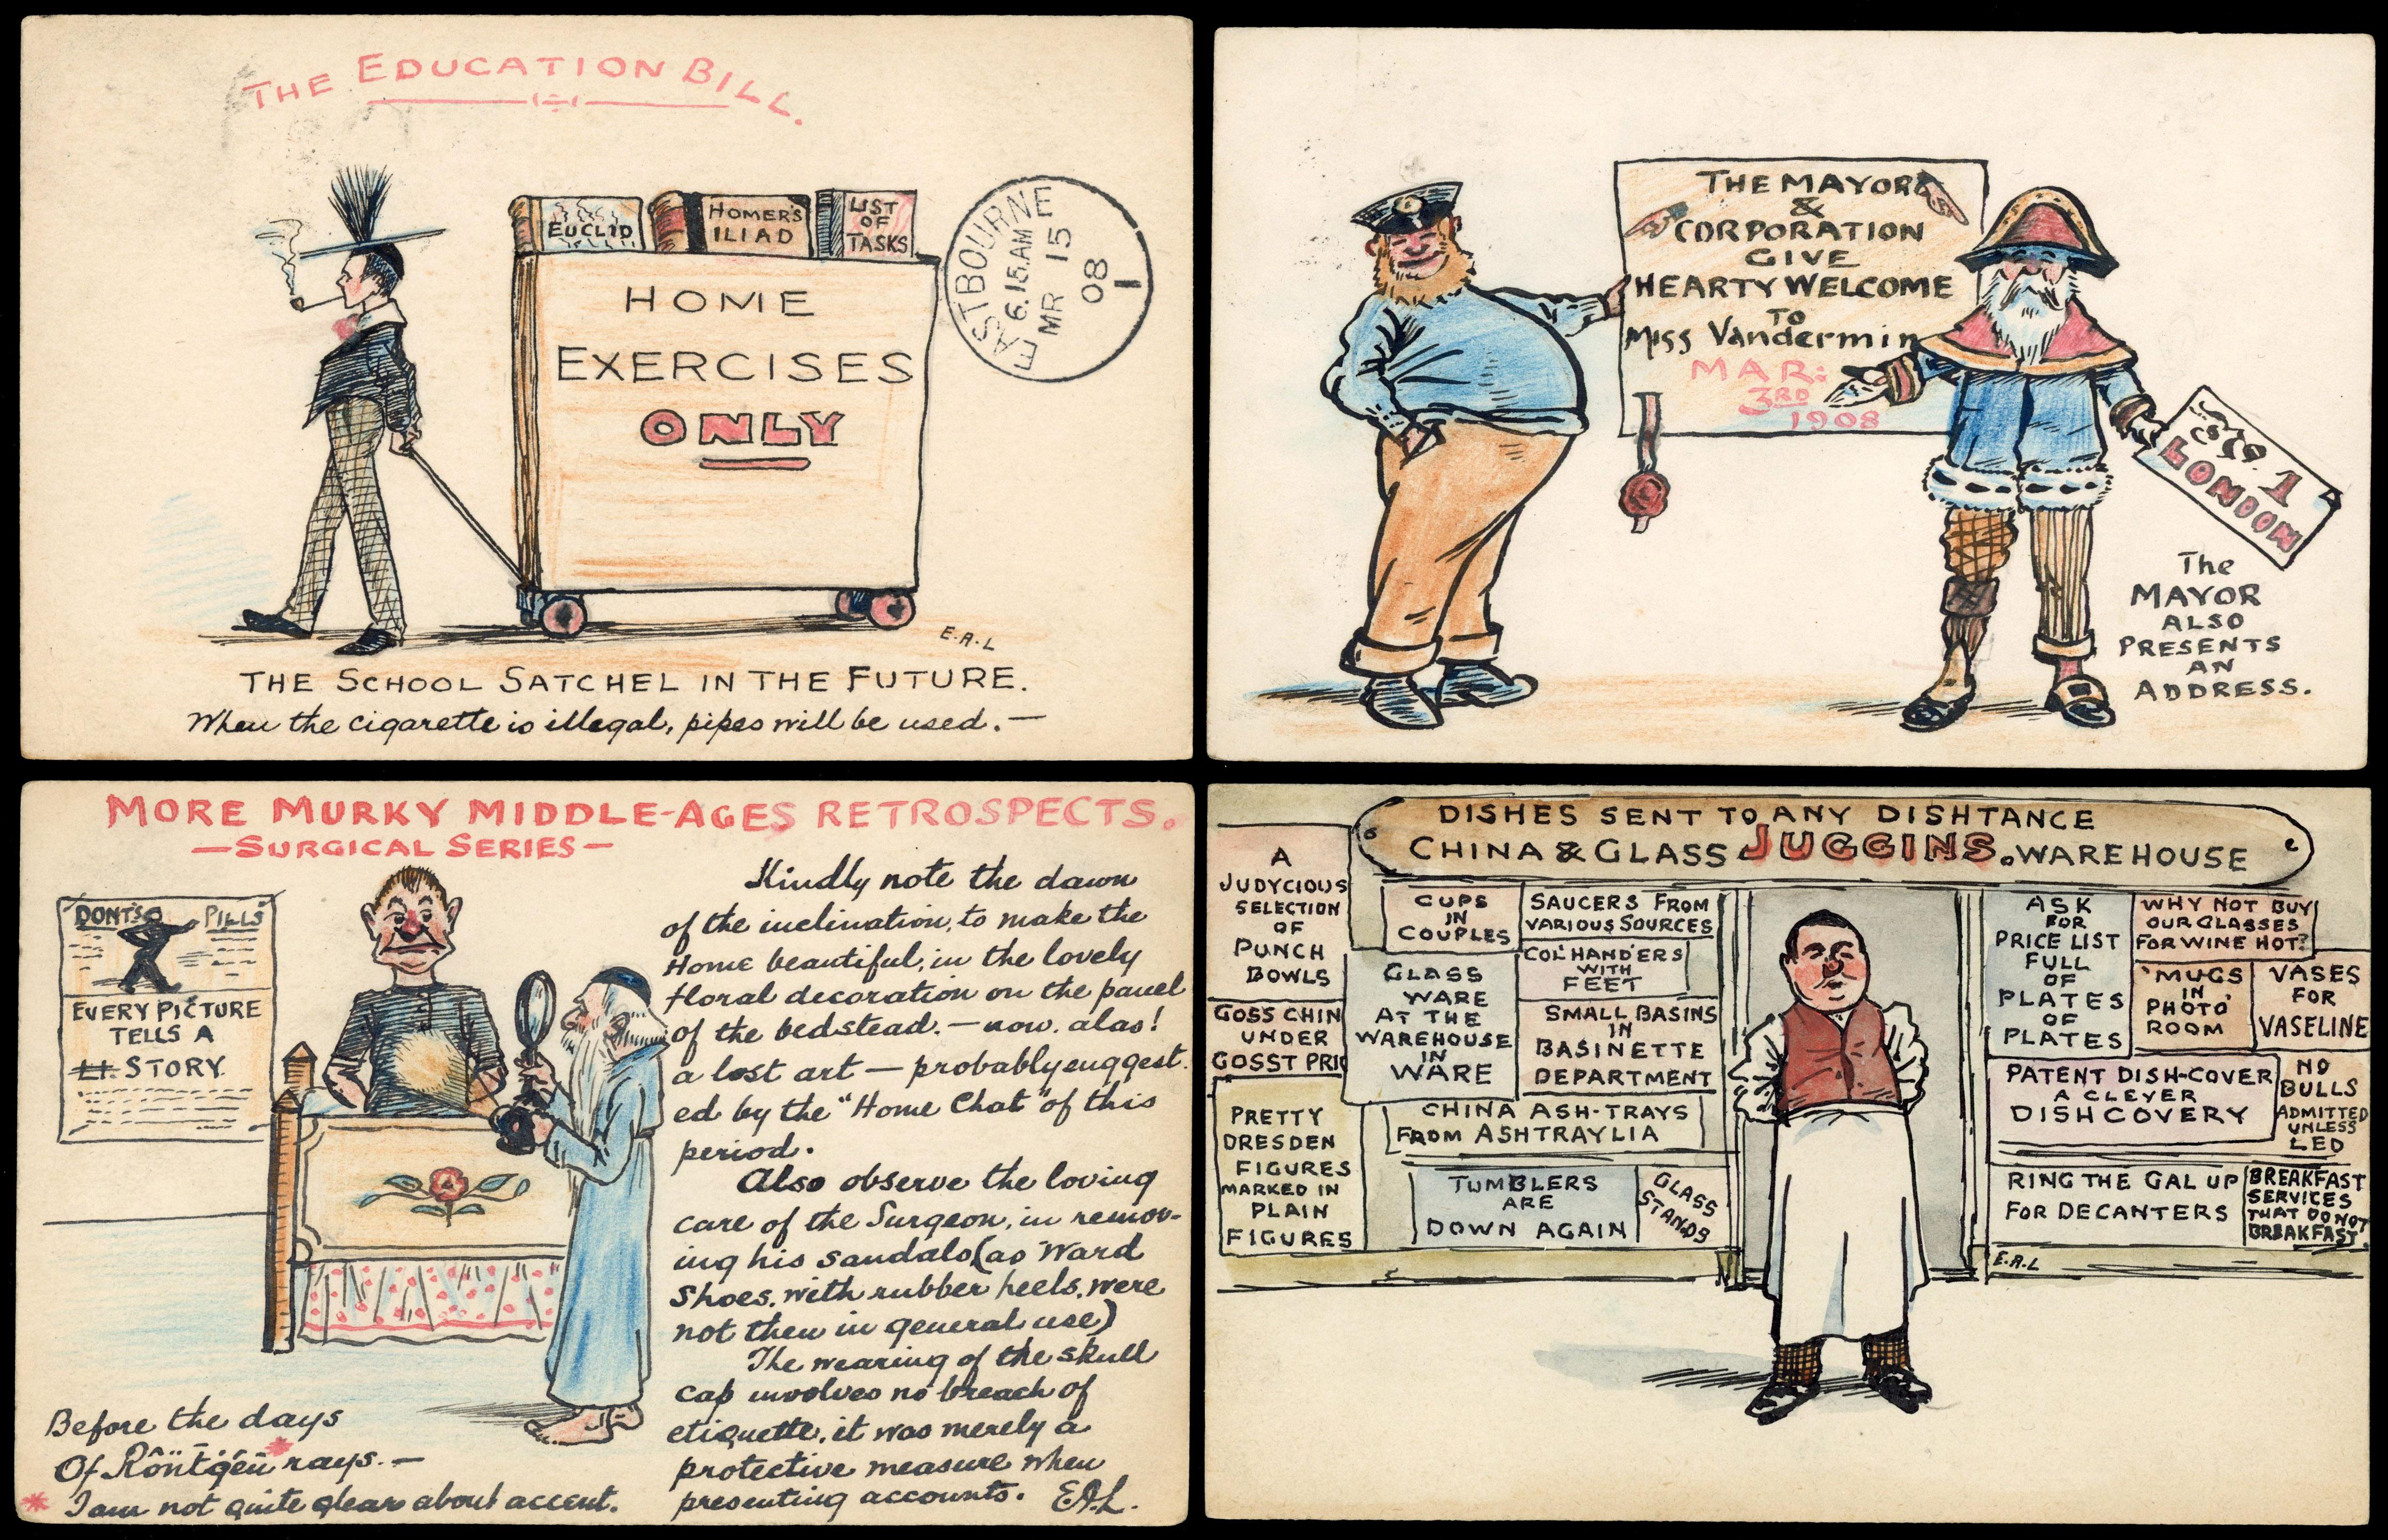 THE EDUCATION BILL.
EUCLID
HOMER'S
ILIAD
LIST
OF
TASKS
HOME
EXERCISES
ONLY
EASTBOURNE
6.15.AM
MR 15
08
1
E.A.L
THE SCHOOL SATCHEL IN THE FUTURE.
When the cigarette is illegal, pipes will be used.—
THE MAYOR
&
CORPORATION
GIVE
HEARTY WELCOME
TO
Miss Vandermin
MAR:
3RD
1908
1
LONDON
The
MAYOR
ALSO
PRESENTS
AN
ADDRESS.
MORE MURKY MIDDLE-AGES RETROSPECTS.
—SURGICAL SERIES—
DONT'S PILLS
EVERY PICTURE
TELLS A
STORY.
Kindly note the dawn
of the inclination, to make the
Home beautiful, in the lovely
floral decoration on the panel
of the bedstead. — now. alas!
a lost art — probably suggest.
ed by the "Home Chat" of this
period.
Also observe the loving
care of the Surgeon, in remov-
ing his sandals (as Ward
Shoes, with rubber heels, were
not then in general use)
The wearing of the skull
cap involves no breach of
etiquette, it was merely a
protective measure when
presenting accounts. E.A.L.
Before the days
Of Röntgen rays. —
* I am not quite clear about accent.
DISHES SENT TO ANY DISHTANCE
CHINA & GLASS JUGGINS. WAREHOUSE
A
JUDYCIOUS
SELECTION
OF
PUNCH
BOWLS
GOSS CHIN
UNDER
GOSST PRIC
PRETTY
DRESDEN
FIGURES
MARKED IN
PLAIN
FIGURES
CUPS
IN
COUPLES
GLASS
WARE
AT THE
WAREHOUSE
IN
WARE
SAUCERS FROM
VARIOUS SOURCES
COL'HANDERS
WITH
FEET
SMALL BASINS
IN
BASINETTE
DEPARTMENT
CHINA ASH-TRAYS
FROM ASHTRAYLIA
TUMBLERS
ARE
DOWN AGAIN
GLASS
STANDS
ASK
FOR
PRICE LIST
FULL
OF
PLATES
OF
PLATES
WHY NOT BUY
OUR GLASSES
FOR WINE HOT?
'MUGS
IN
PHOTO'
ROOM
VASES
FOR
VASELINE
PATENT DISH-COVER
A CLEVER
DISHCOVERY
NO
BULLS
ADMITTED
UNLESS
LED
RING THE GAL UP
FOR DECANTERS
BREAKFAST
SERVICES
THAT DO NOT
BREAKFAST.
E.A.L